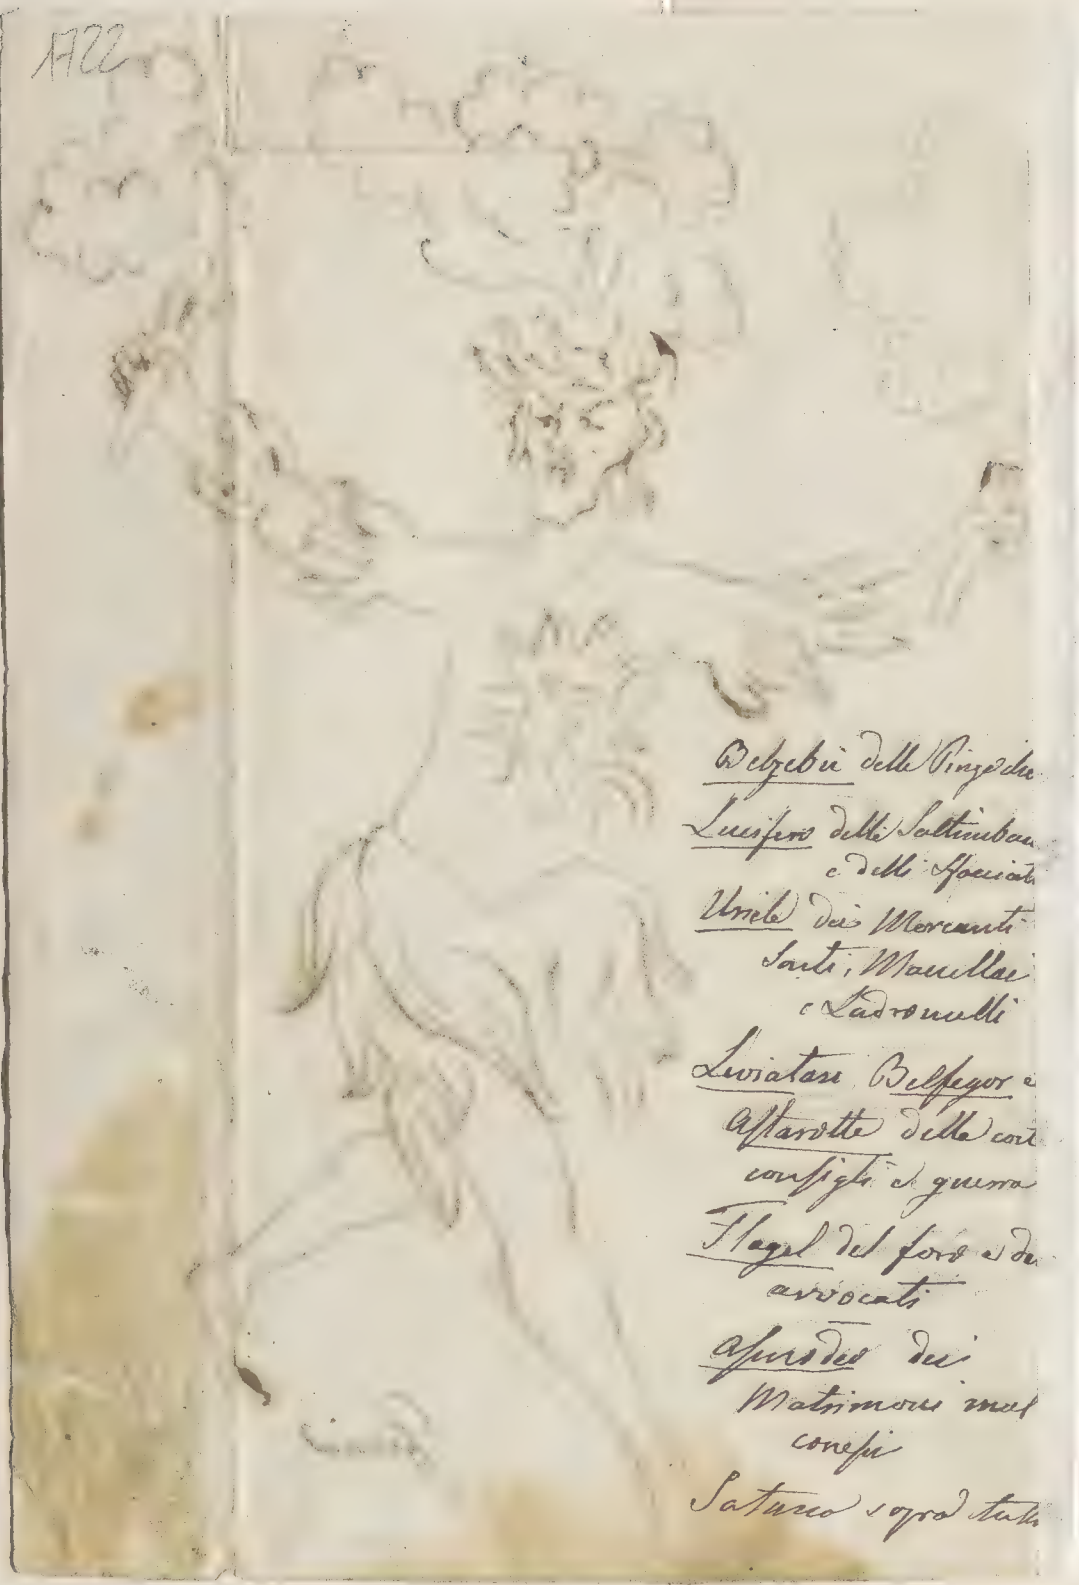 1722
Belzebù delle Pinzoche
Lucifero delli Saltimban
e delli Sfacciati
Uriele dei Mercanti
Sarti, Macellai
e Ladroncelli
Leviatan Belfegor e
Astarotte delle cort
consigli e guerra
Flagel del foro e de
avvocati
Asmodeo dei
Matrimoni mal
Satanà sopra tutti